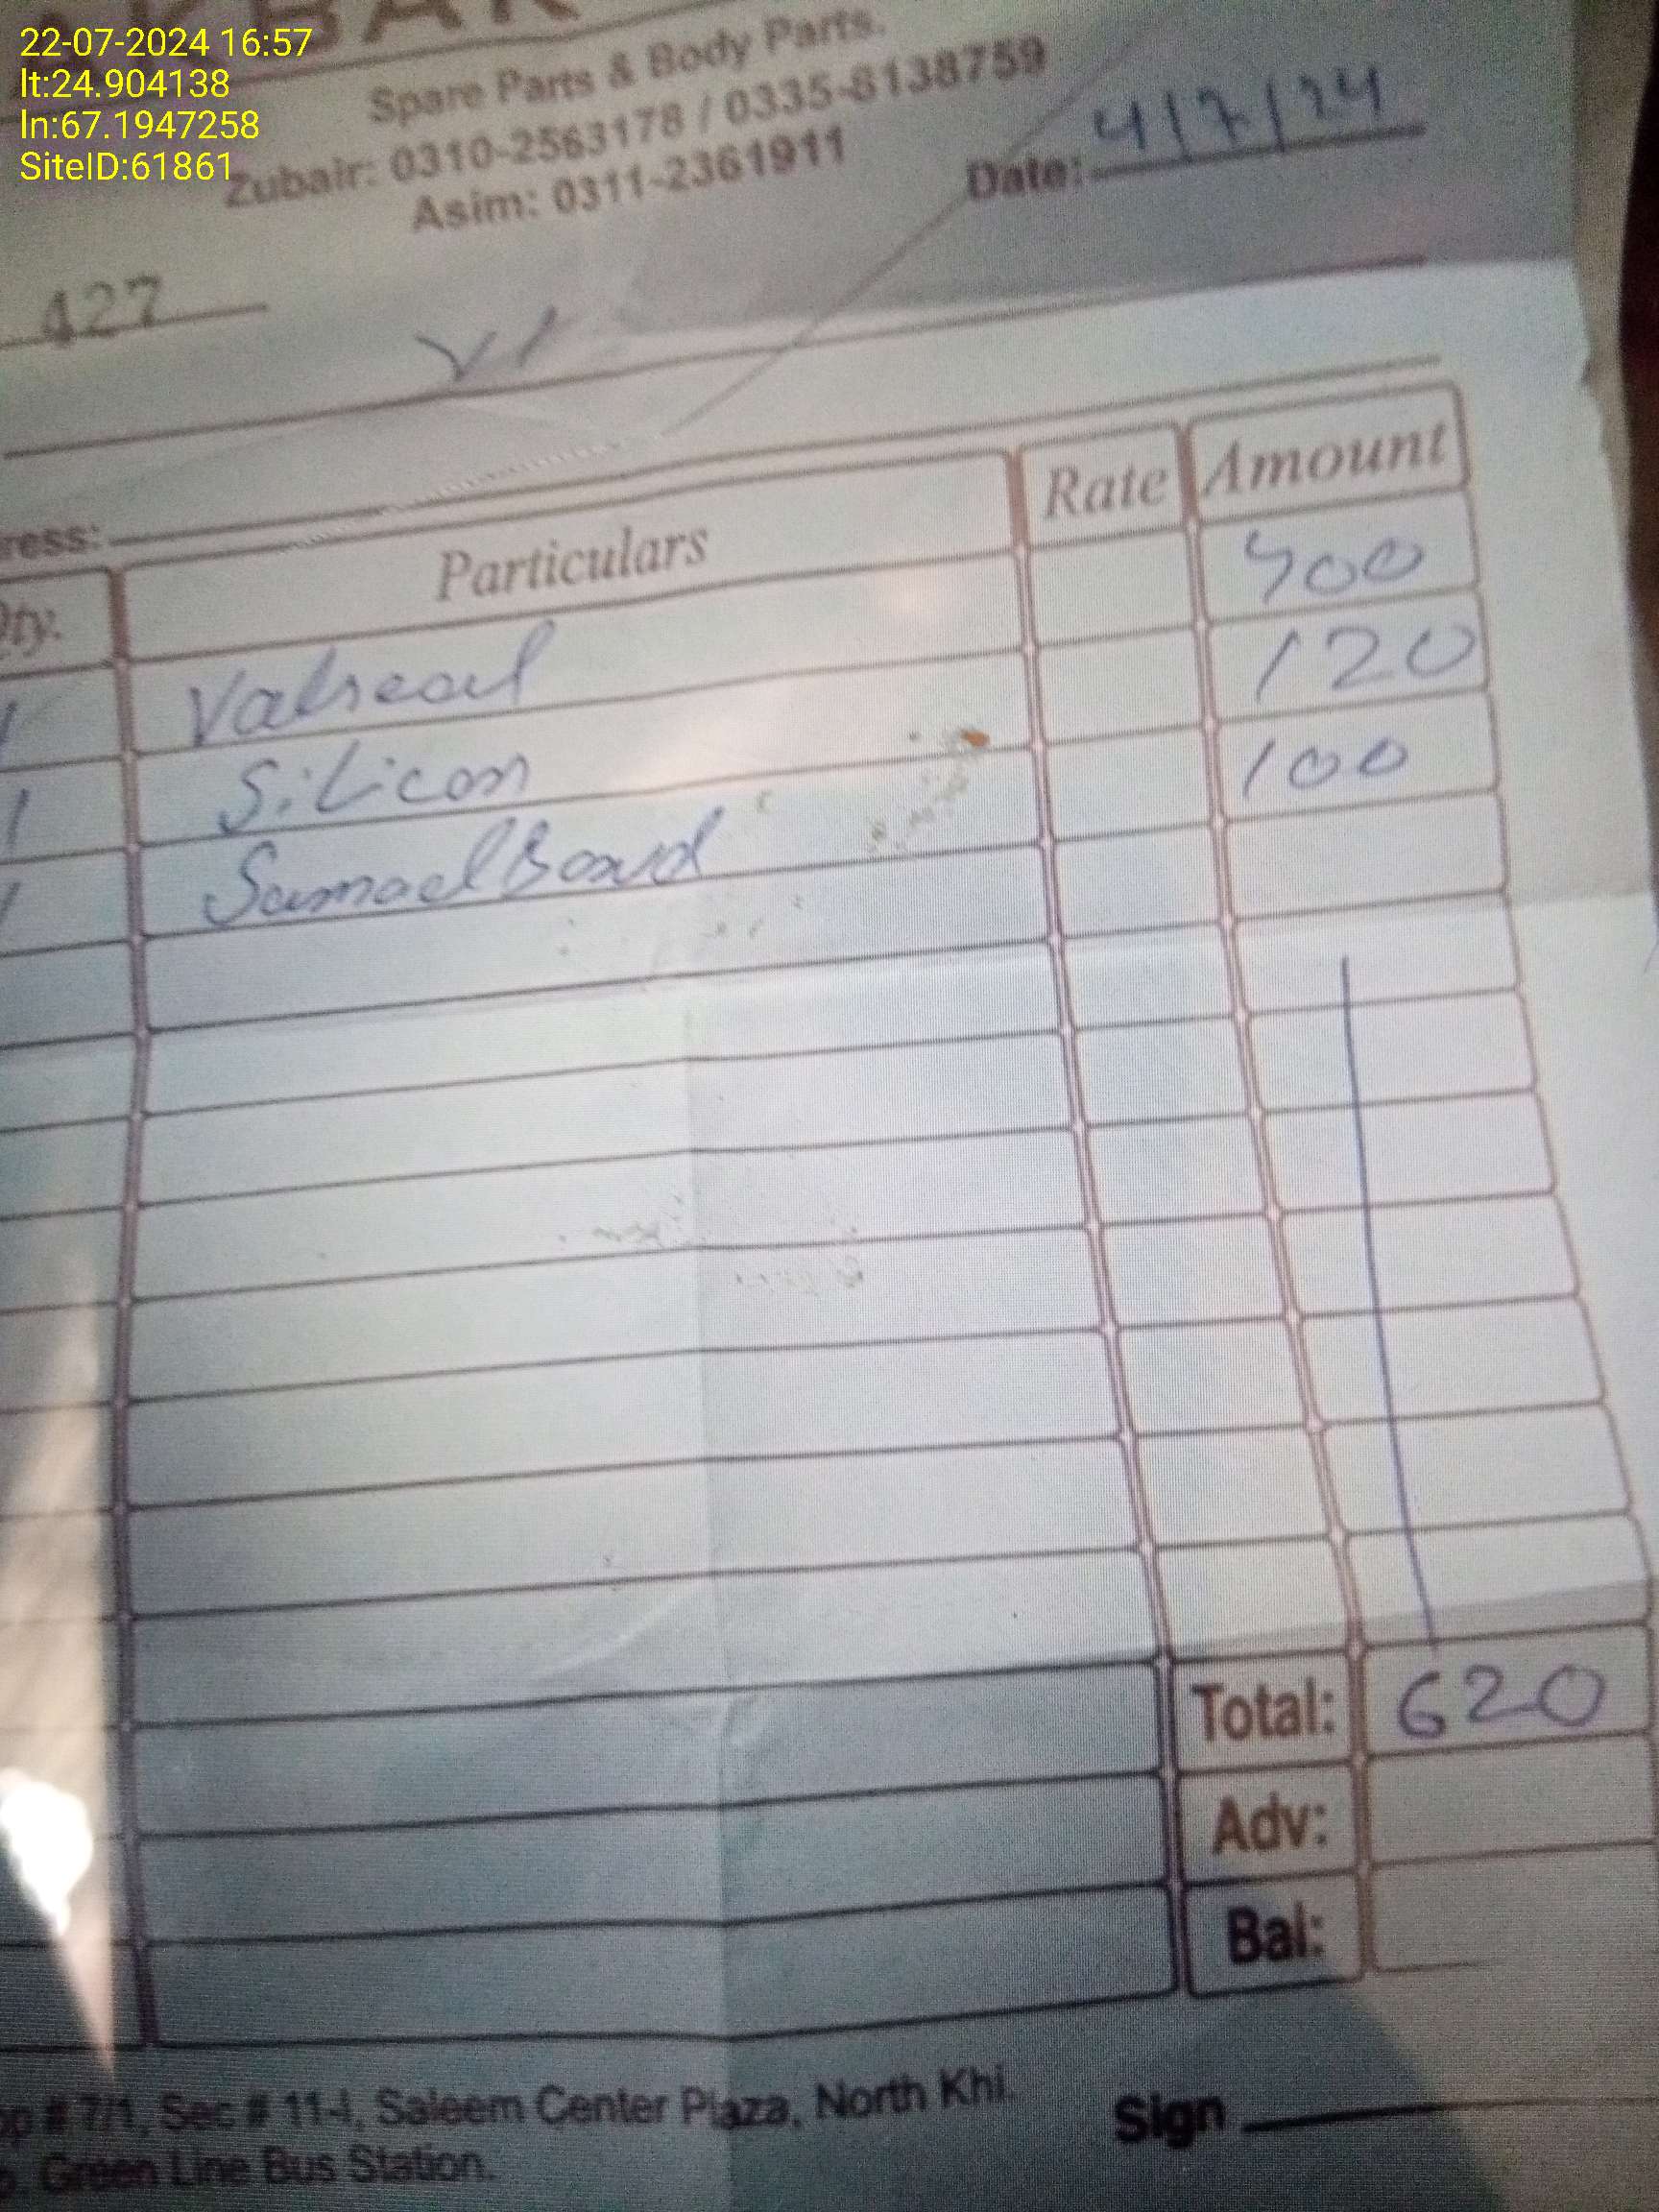 22-07-2024 16:57
lt:24.904138
ln:67.1947258
SiteID:61861
Spare Parts & Body Parts.
Zubair: 0310-2563178 / 0335-8138759
Asim: 0311-2361911
Date: 4/7/24
427
ress:
Qty. Particulars Rate Amount
1 Valseal 400
1 Silicon 120
1 100
Total: 620
Adv:
Bal:
op # 7/1, Sec # 11-I, Saleem Center Plaza, North Khi.
Green Line Bus Station.
Sign